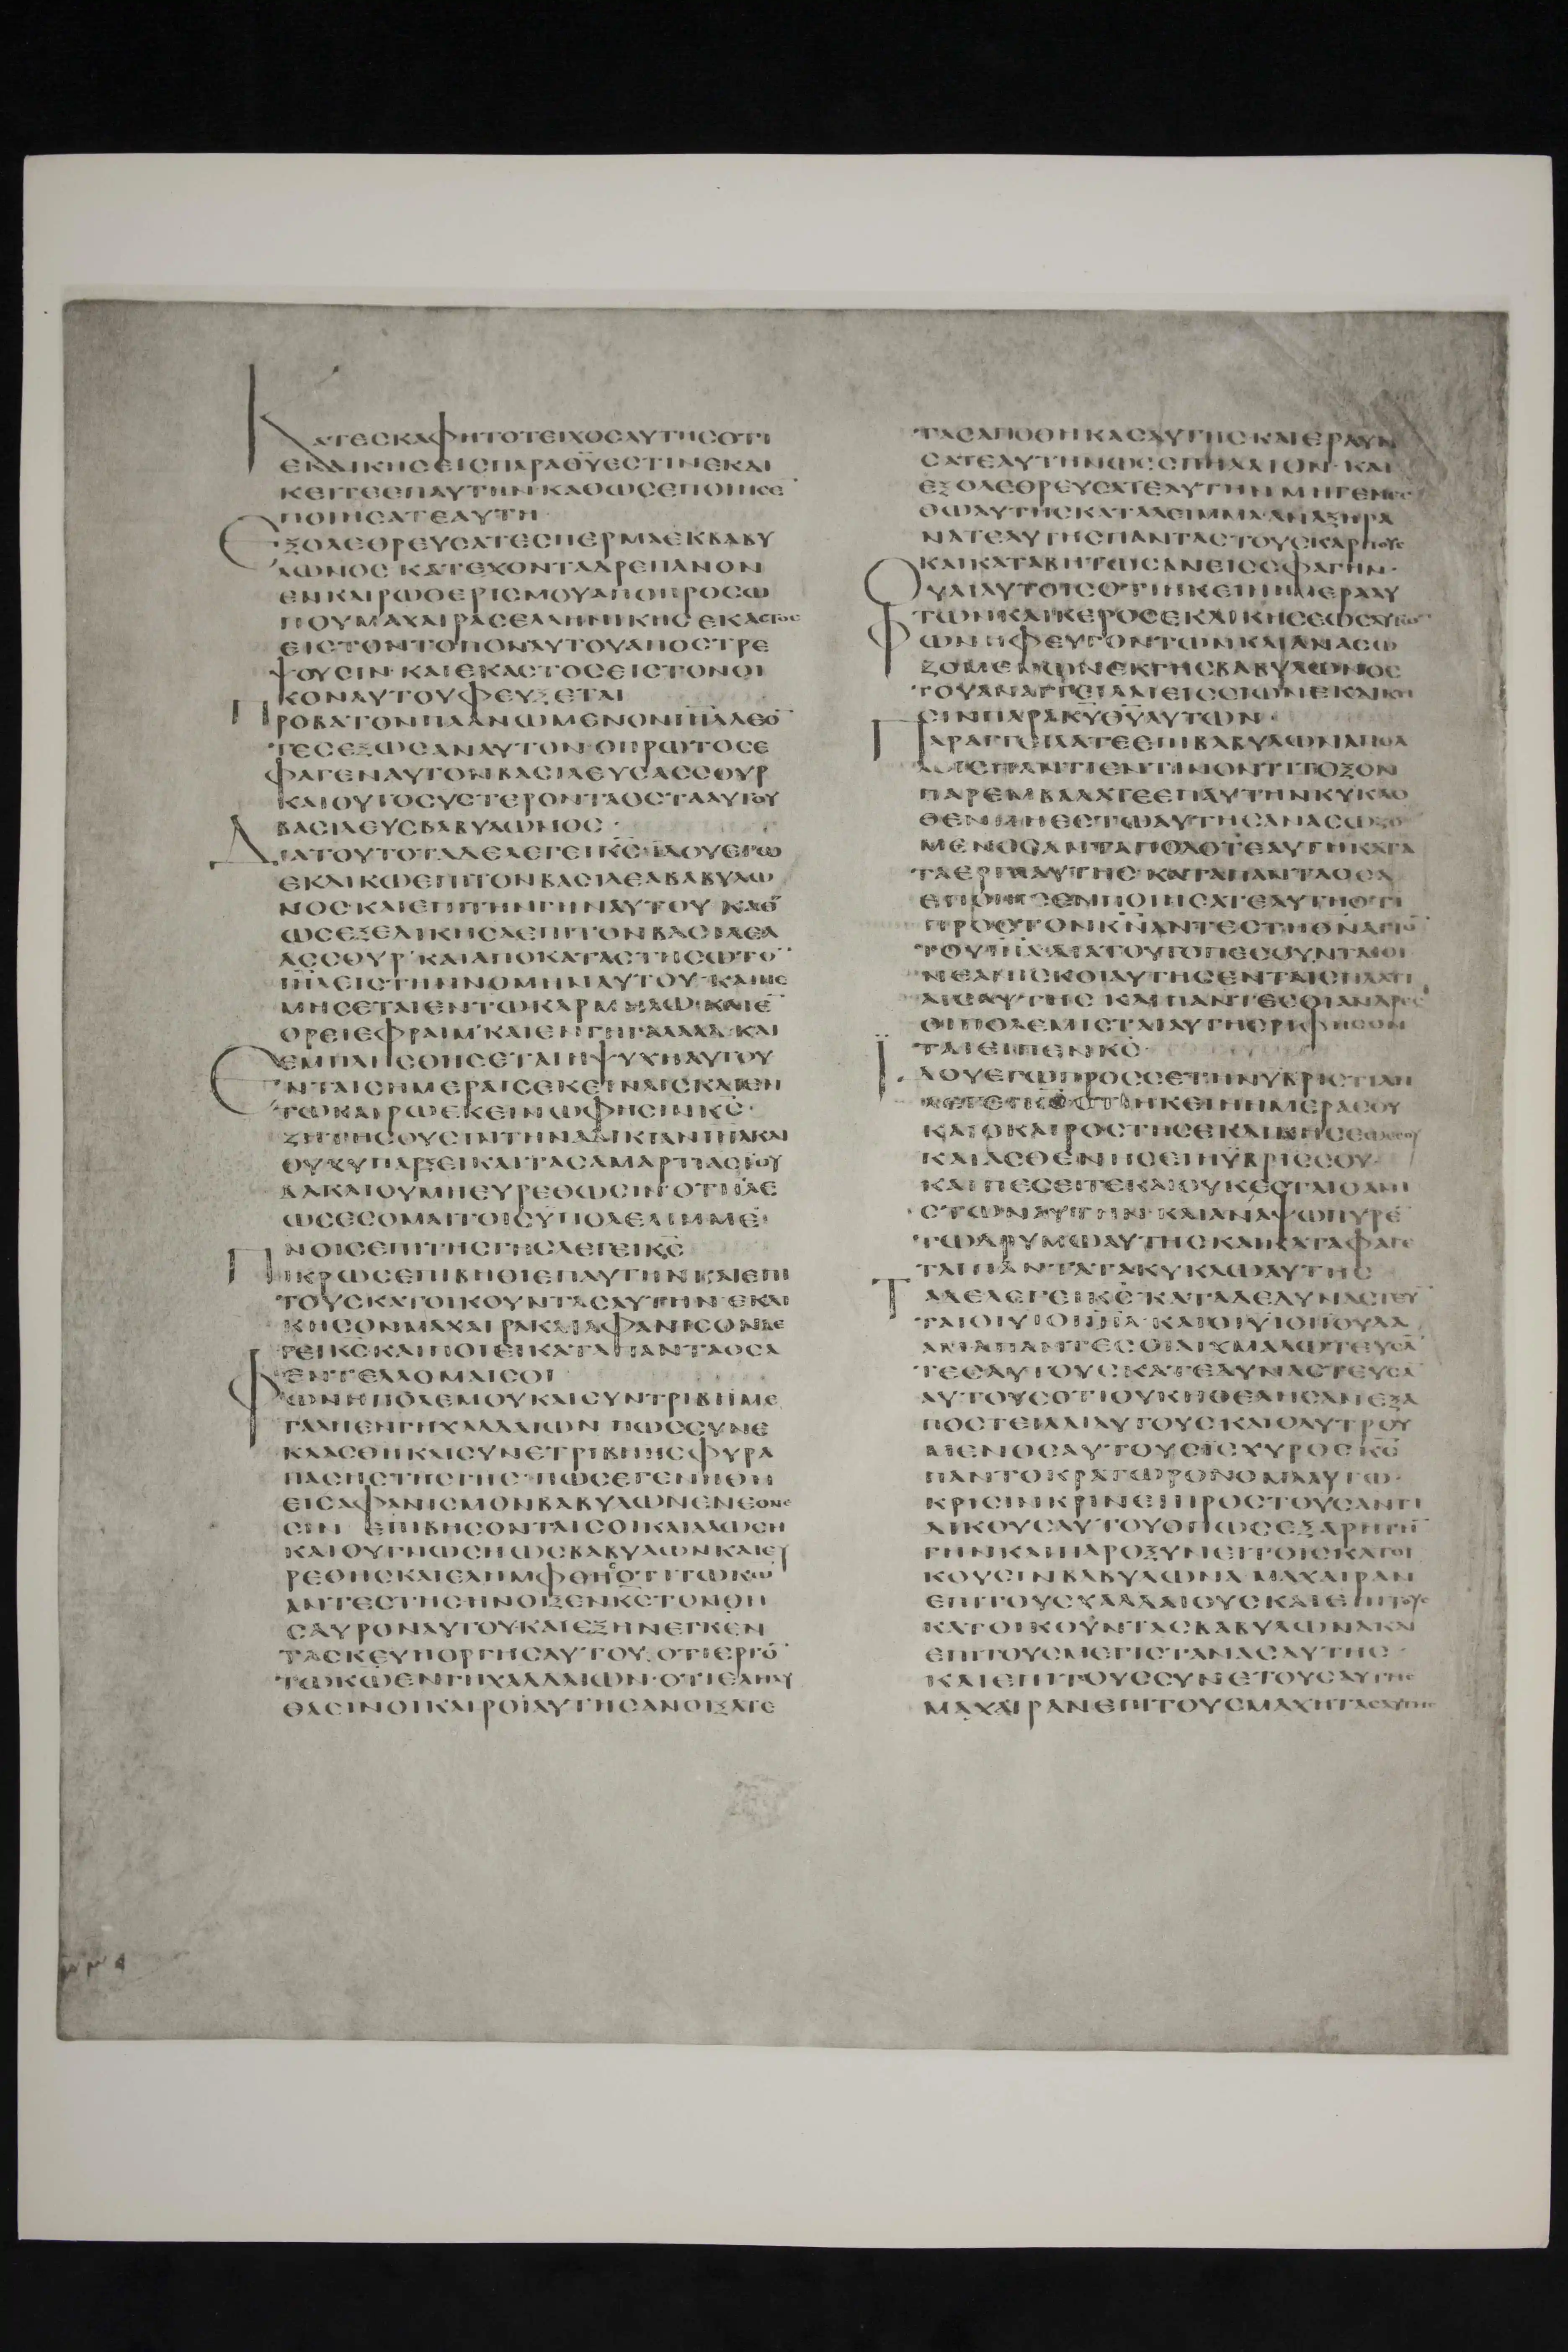 ΚΑΤΕϹΚΑΦΗΤΟΤΕΙΧΟϹΑΥΤΗϹΟΤΙ
ΕΚΔΙΚΗϹΕΙϹΠΑΡΑΘΥΕϹΤΙΝΕΚΔΙ
ΚΕΙΤΕΕΠΑΥΤΗΝ·ΚΑΘΩϹΕΠΟΙΗϹΕ
ΠΟΙΗϹΑΤΕΑΥΤΗ
ΕΞΟΛΕΘΡΕΥϹΑΤΕϹΠΕΡΜΑΕΚΒΑΒΥ
ΛΩΝΟϹ·ΚΑΤΕΧΟΝΤΑΔΡΕΠΑΝΟΝ
ΕΝΚΑΙΡΩΘΕΡΙϹΜΟΥΑΠΟΠΡΟϹΩ
ΠΟΥΜΑΧΑΙΡΑϹΕΛΛΗΝΙΚΗϹΕΚΑϹΤΟϹ
ΕΙϹΤΟΝΤΟΠΟΝΑΥΤΟΥΑΠΟϹΤΡΕ
ΨΟΥϹΙΝ·ΚΑΙΕΚΑϹΤΟϹΕΙϹΤΟΝΟΙ
ΚΟΝΑΥΤΟΥΦΕΥΞΕΤΑΙ
ΠΡΟΒΑΤΟΝΠΛΑΝΩΜΕΝΟΝΙΗΛΛΕΟ
ΤΕϹΕΞΩϹΑΝΑΥΤΟΝ·ΟΠΡΩΤΟϹΕ
ΦΑΓΕΝΑΥΤΟΝΒΑϹΙΛΕΥϹΑϹϹΟΥΡ
ΚΑΙΟΥΤΟϹΥϹΤΕΡΟΝΤΑΟϹΤΑΑΥΤΟΥ
ΒΑϹΙΛΕΥϹΒΑΒΥΛΩΝΟϹ·
ΔΙΑΤΟΥΤΟΤΑΔΕΛΕΓΕΙΚϹ·ΙΔΟΥΕΓΩ
ΕΚΔΙΚΩΕΠΙΤΟΝΒΑϹΙΛΕΑΒΑΒΥΛΩ
ΝΟϹΚΑΙΕΠΙΤΗΝΓΗΝΑΥΤΟΥ·ΚΑΘ
ΩϹΕΞΕΔΙΚΗϹΑΕΠΙΤΟΝΒΑϹΙΛΕΑ
ΑϹϹΟΥΡ·ΚΑΙΑΠΟΚΑΤΑϹΤΗϹΩΤΟ
ΙΗΛΕΙϹΤΗΝΝΟΜΗΝΑΥΤΟΥ·ΚΑΙΝΕ
ΜΗϹΕΤΑΙΕΝΤΩΚΑΡΜΗΛΩ·ΚΑΙΕ
ΟΡΕΙΕΦΡΑΙΜ·ΚΑΙΕΝΓΗΓΑΛΑΑΔ·ΚΑΙ
ΕΜΠΛΗϹΘΗϹΕΤΑΙΗΨΥΧΗΑΥΤΟΥ
ΕΝΤΑΙϹΗΜΕΡΑΙϹΕΚΕΙΝΑΙϹΚΑΙΕΝ
ΤΩΚΑΙΡΩΕΚΕΙΝΩΦΗϹΙΝΚϹ·
ΖΗΤΗϹΟΥϹΙΝΤΗΝΑΔΙΚΙΑΝΙΗΛΚΑΙ
ΟΥΧΥΠΑΡΞΕΙΚΑΙΤΑϹΑΜΑΡΤΙΑϹΙΟΥ
ΔΑΚΑΙΟΥΜΗΕΥΡΕΘΩϹΙΝ·ΟΤΙΙΛΕ
ΩϹΕϹΟΜΑΙΤΟΙϹΥΠΟΛΕΛΙΜΜΕ
ΝΟΙϹΕΠΙΤΗϹΓΗϹΛΕΓΕΙΚϹ
ΠΙΚΡΩϹΕΠΙΒΗΘΙΕΠΑΥΤΗΝΚΑΙΕΠΙ
ΤΟΥϹΚΑΤΟΙΚΟΥΝΤΑϹΑΥΤΗΝ·ΕΚΔΙ
ΚΗϹΟΝΜΑΧΑΙΡΑΚΑΙΑΦΑΝΙϹΟΝΛΕ
ΓΕΙΚϹΚΑΙΠΟΙΕΙΚΑΤΑΠΑΝΤΑΟϹΑ
ΕΝΤΕΛΛΟΜΑΙϹΟΙ
ΦΩΝΗΠΟΛΕΜΟΥΚΑΙϹΥΝΤΡΙΒΗΜΕ
ΓΑΛΗΕΝΓΗΧΑΛΔΑΙΩΝ·ΠΩϹϹΥΝΕ
ΚΛΑϹΘΗΚΑΙϹΥΝΕΤΡΙΒΗΗϹΦΥΡΑ
ΠΑϹΗϹΤΗϹΓΗϹ·ΠΩϹΕΓΕΝΗΘΗ
ΕΙϹΑΦΑΝΙϹΜΟΝΒΑΒΥΛΩΝΕΝΕΘΝΕ
ϹΙΝ ΕΠΙΒΗϹΟΝΤΑΙϹΟΙΚΑΙΑΛΩϹΗ
ΚΑΙΟΥΓΝΩϹΗΩϹΒΑΒΥΛΩΝΚΑΙΕΥ
ΡΕΘΗϹΚΑΙΕΛΗΜΦΘΗϹΟΤΙΤΩΚΩ
ΑΝΤΕϹΤΗϹΗΝΟΙΞΕΝΚϹΤΟΝΘΗ
ϹΑΥΡΟΝΑΥΤΟΥΚΑΙΕΞΗΝΕΓΚΕΝ
ΤΑϹΚΕΥΗΟΡΓΗϹΑΥΤΟΥ·ΟΤΙΕΡΓΟ
ΤΩΚΩΕΝΓΗΧΑΛΔΑΙΩΝ·ΟΤΙΕΛΗΛΥ
ΘΑϹΙΝΟΙΚΑΙΡΟΙΑΥΤΗϹΑΝΟΙΞΑΤΕ
ΤΑϹΑΠΟΘΗΚΑϹΑΥΤΗϹΚΑΙΕΡΑΥΝ
ϹΑΤΕΑΥΤΗΝΩϹϹΠΗΛΑΙΟΝ·ΚΑΙ
ΕΞΟΛΕΘΡΕΥϹΑΤΕΑΥΤΗΝΜΗΓΕΝΕϹ
ΘΩΑΥΤΗϹΚΑΤΑΛΕΙΜΜΑ·ΑΝΑΞΗΡΑ
ΝΑΤΕΑΥΤΗϹΠΑΝΤΑϹΤΟΥϹΚΑΡΠΟΥϹ
ΚΑΙΚΑΤΑΒΗΤΩϹΑΝΕΙϹϹΦΑΓΗΝ·
ΟΥΑΙΑΥΤΟΙϹΟΤΙΗΚΕΙΗΗΜΕΡΑΑΥ
ΤΩΝΚΑΙΚΕΡΟϹΕΚΔΙΚΗϹΕΩϹΑΥΤΩ
ΦΩΝΗΦΕΥΓΟΝΤΩΝΚΑΙΑΝΑϹΩ
ΖΟΜΕΝΩΝΕΚΓΗϹΒΑΒΥΛΩΝΟϹ
ΤΟΥΑΝΑΓΓΕΙΛΑΙΕΙϹϹΙΩΝΕΚΔΙΚΗ
ϹΙΝΠΑΡΑΚΥΘΥΑΥΤΩΝ·
ΠΑΡΑΓΓΕΙΛΑΤΕΕΠΙΒΑΒΥΛΩΝΑΠΟΛ
ΠΑΝΤΙΕΝΤΙΝΟΝΤΙΤΟΞΟΝ
ΠΑΡΕΜΒΑΛΑΤΕΕΠΑΥΤΗΝΚΥΚΛΟ
ΘΕΝΜΗΕϹΤΩΑΥΤΗϹΑΝΑϹΩΖΟ
ΜΕΝΟϹΑΝΤΑΠΟΔΟΤΕΑΥΤΗΚΑΤΑ
ΤΑΕΡΓΑΑΥΤΗϹ·ΚΑΤΑΠΑΝΤΑΟϹΑ
ΕΠΟΙΗϹΕΝΠΟΙΗϹΑΤΕΑΥΤΗΟΤΙ
ΠΡΟϹΤΟΝΚΝΑΝΤΕϹΤΗΘΝΑΓΙΟ
ΤΟΥΙΗΛΔΙΑΤΟΥΤΟΠΕϹΟΥΝΤΑΙΟΙ
ΝΕΑΝΙϹΚΟΙΑΥΤΗϹΕΝΤΑΙϹΠΛΑΤΙ
ΑΙϹΑΥΤΗϹ ΚΑΙΠΑΝΤΕϹΟΙΑΝΔΡΕϹ
ΟΙΠΟΛΕΜΙϹΤΑΙΑΥΤΗϹΡΙΦΗϹΟΝ
ΤΑΙΕΙΠΕΝΚϹ
ΙΔΟΥΕΓΩΠΡΟϹϹΕΤΗΝΥΒΡΙϹΤΙΑΝ
ΛΕΓΕΙΚϹΟΤΙΗΚΕΙΗΗΜΕΡΑϹΟΥ
ΚΑΙΟΚΑΙΡΟϹΤΗϹΕΚΔΙΚΗϹΕΩϹϹΟΥ
ΚΑΙΑϹΘΕΝΗϹΕΙΗΥΒΡΙϹϹΟΥ·
ΚΑΙΠΕϹΕΙΤΕΚΑΙΟΥΚΕϹΤΑΙΟΑΝΙ
ϹΤΩΝΑΥΤΗΝ·ΚΑΙΑΝΑΨΩΠΥΡΕ
ΤΩΔΡΥΜΩΑΥΤΗϹΚΑΙΚΑΤΑΦΑΓΕ
ΤΑΙΠΑΝΤΑΤΑΚΥΚΛΩΑΥΤΗϹ
ΤΑΔΕΛΕΓΕΙΚϹ·ΚΑΤΑΔΕΔΥΝΑϹΤΕΥ
ΤΑΙΟΙΥΙΟΙΙΗΛ·ΚΑΙΟΙΥΙΟΙΙΟΥΔΑ
ΑΜΑΠΑΝΤΕϹΟΙΑΙΧΜΑΛΩΤΕΥϹΑ
ΤΕϹΑΥΤΟΥϹΚΑΤΕΔΥΝΑϹΤΕΥϹΑ
ΑΥΤΟΥϹΟΤΙΟΥΚΗΘΕΛΗϹΑΝΕΞΑ
ΠΟϹΤΕΙΛΑΙΑΥΤΟΥϹΚΑΙΟΛΥΤΡΟΥ
ΜΕΝΟϹΑΥΤΟΥϹΙϹΧΥΡΟϹΚϹ
ΠΑΝΤΟΚΡΑΤΩΡΟΝΟΜΑΑΥΤΩ·
ΚΡΙϹΙΝΚΡΙΝΕΙΠΡΟϹΤΟΥϹΑΝΤΙ
ΔΙΚΟΥϹΑΥΤΟΥΟΠΩϹΕΞΑΡΗΤΗ
ΓΗΝΚΑΙΠΑΡΟΞΥΝΕΙΤΟΙϹΚΑΤΟΙ
ΚΟΥϹΙΝΒΑΒΥΛΩΝΑ ΜΑΧΑΙΡΑΝ
ΕΠΙΤΟΥϹΧΑΛΔΑΙΟΥϹΚΑΙΕΠΙΤΟΥϹ
ΚΑΤΟΙΚΟΥΝΤΑϹΒΑΒΥΛΩΝΑΚΑΙ
ΕΠΙΤΟΥϹΜΕΓΙϹΤΑΝΑϹΑΥΤΗϹ·
ΚΑΙΕΠΙΤΟΥϹϹΥΝΕΤΟΥϹΑΥΤΗϹ
ΜΑΧΑΙΡΑΝΕΠΙΤΟΥϹΜΑΧΗΤΑϹΑΥΤΗϹ